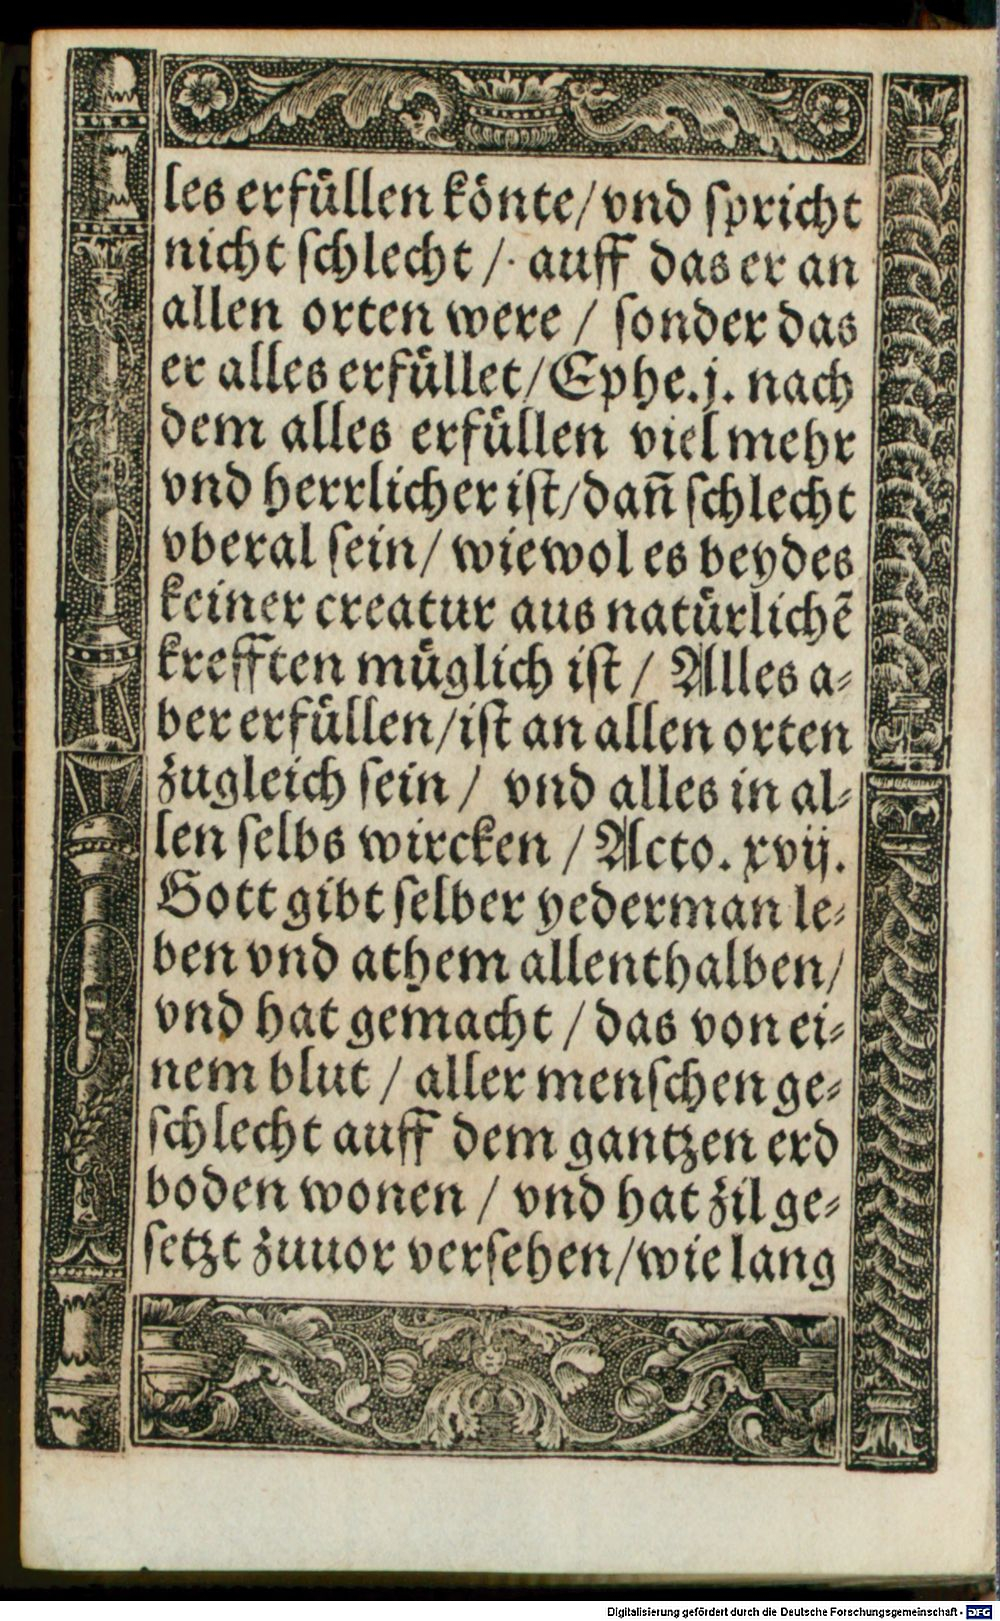 les erfüllen könte/vnd spricht
nicht schlecht /· auff das er an
allen orten were / sonder das
er alles erfüllet/Ephe.j. nach
dem alles erfüllen viel mehr
vnd herrlicher ist/dañ schlecht
vberal sein/ wiewol es beydes
keiner creatur aus natürlichẽ
krefften müglich ist / Alles a-
ber erfüllen/ist an allen orten
zugleich sein / vnd alles in al-
len selbs wircken / Acto. xvij.
Gott gibt selber yederman le-
ben vnd athem allenthalben/
vnd hat gemacht / das von ei-
nem blut / aller menschen ge-
schlecht auff dem gantzen erd
boden wonen / vnd hat zil ge-
setzt zuuor versehen/wie lang
Digitalisierung gefördert durch die Deutsche Forschungsgemeinschaft - DFG